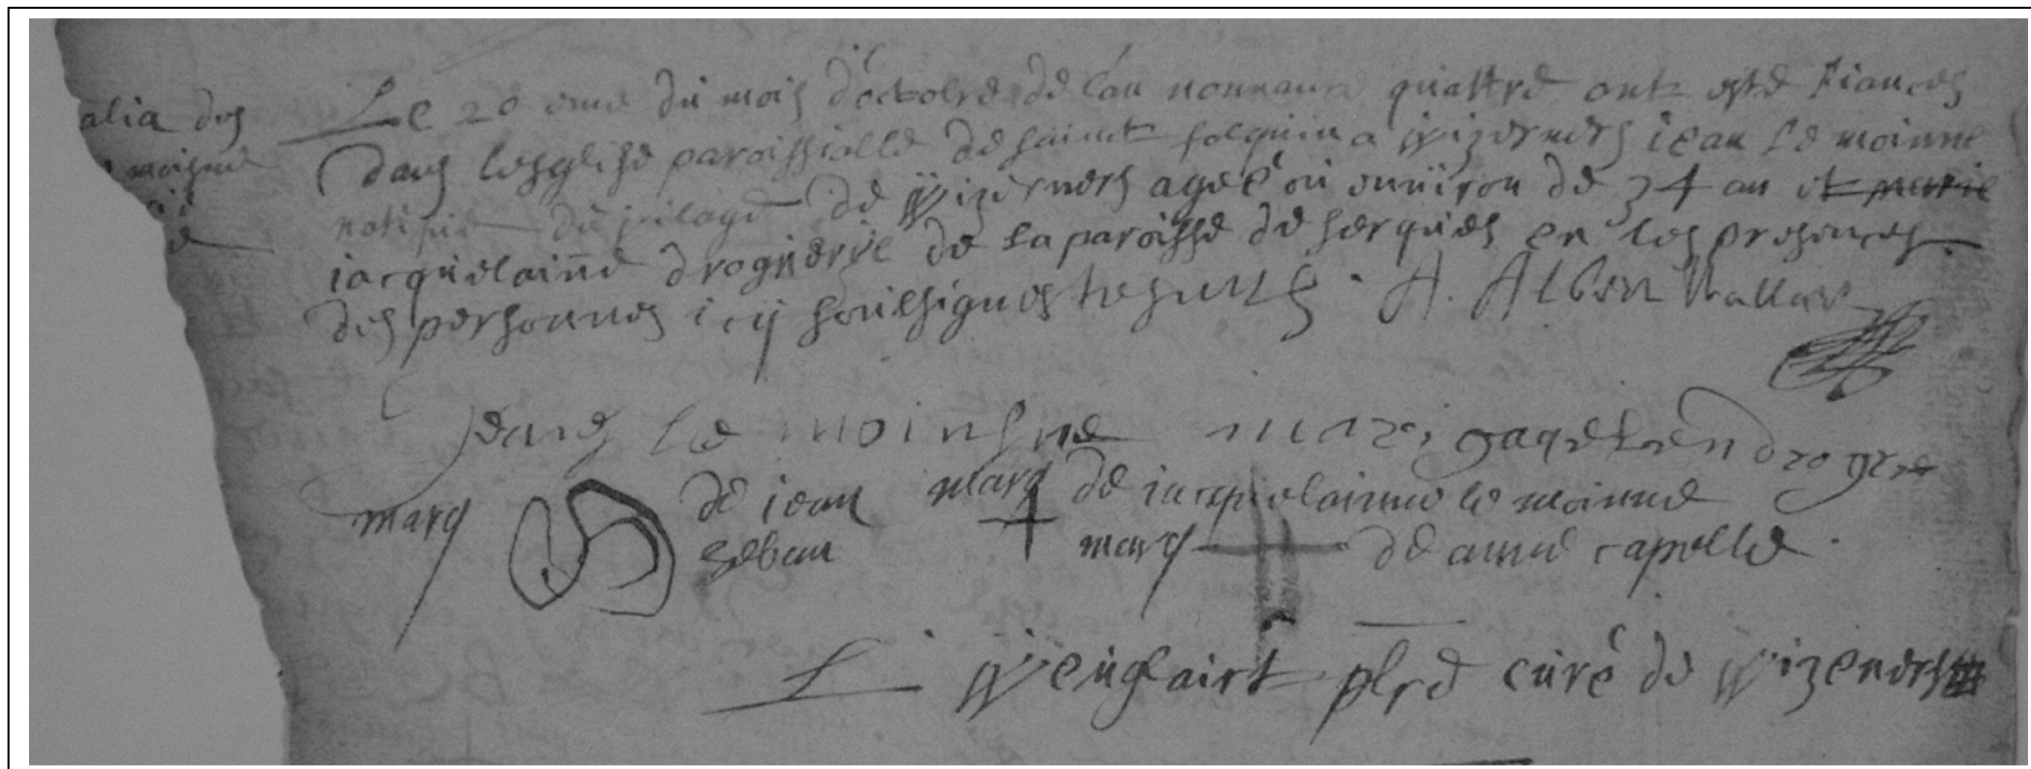 alia des
moisne
Le 20 eme du mois d'octobre de l'an nonnante quattre ont esté fiancés
dans lesglise paroissialle de sainct folquin a Wizernes iean le moinne
notif du vilage de Wizernes ageé ou enuiron de 34 an et marie
iacquelainne drognerie de la paroisse de herques en les presences
des personnes icy soubsignes tesmts A. Alben Wallart
Jean le moinsne mari jaqueleen drogre
marq de iean marq de iacquelainne le moinne
geban marq de anne capelle
L Wenglairt pbre curé de Wizernes